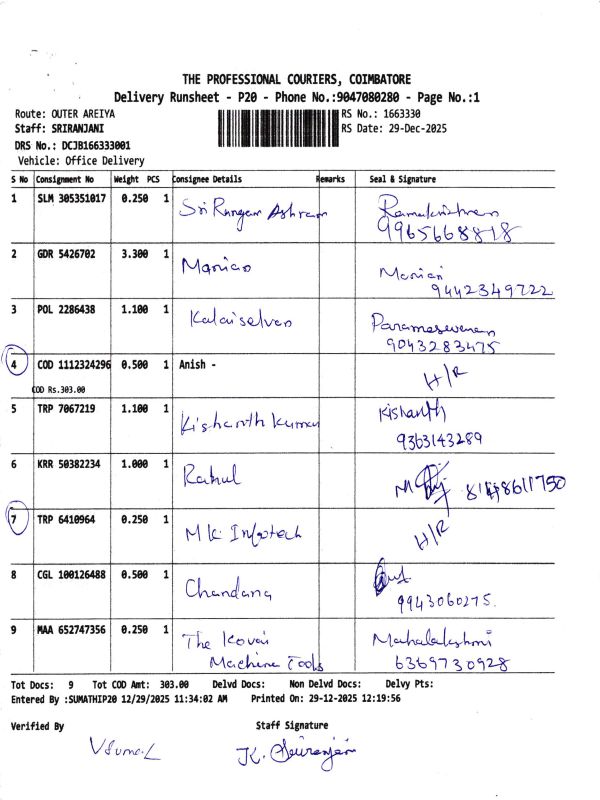 THE PROFESSIONAL COURIERS, COIMBATORE
Delivery Runsheet - P20 - Phone No.:9047080280 - Page No.:1
Route: OUTER AREIYA RS No.: 1663330
Staff: SRIRANJANI RS Date: 29-Dec-2025
DRS No.: DCJB166333001
Vehicle: Office Delivery
S No Consignment No Weight PCS Consignee Details Remarks Seal & Signature
1 SLM 305351017 0.250 1 Sri Rangan Ashram Ramakrishnan
9965668818
2 GDR 5426702 3.300 1 Manian Manian
9442349722
3 POL 2286438 1.100 1 Kalaiselvan Parameswaran
9043283475
4 COD 1112324296 0.500 1 Anish - H/R
COD Rs.303.00
5 TRP 7067219 1.100 1 Kishanth Kumar Kishanth
9363143289
6 KRR 50382234 1.000 1 Rahul
7 TRP 6410964 0.250 1 MK Infotech H/R
8 CGL 100126488 0.500 1 Chandana
9943060275.
9 MAA 652747356 0.250 1 The Kovai Mahalakshmi
Machine Tools 6369730928
Tot Docs: 9 Tot COD Amt: 303.00 Delvd Docs: Non Delvd Docs: Delvy Pts:
Entered By :SUMATHIP20 12/29/2025 11:34:02 AM Printed On: 29-12-2025 12:19:56
Verified By Staff Signature